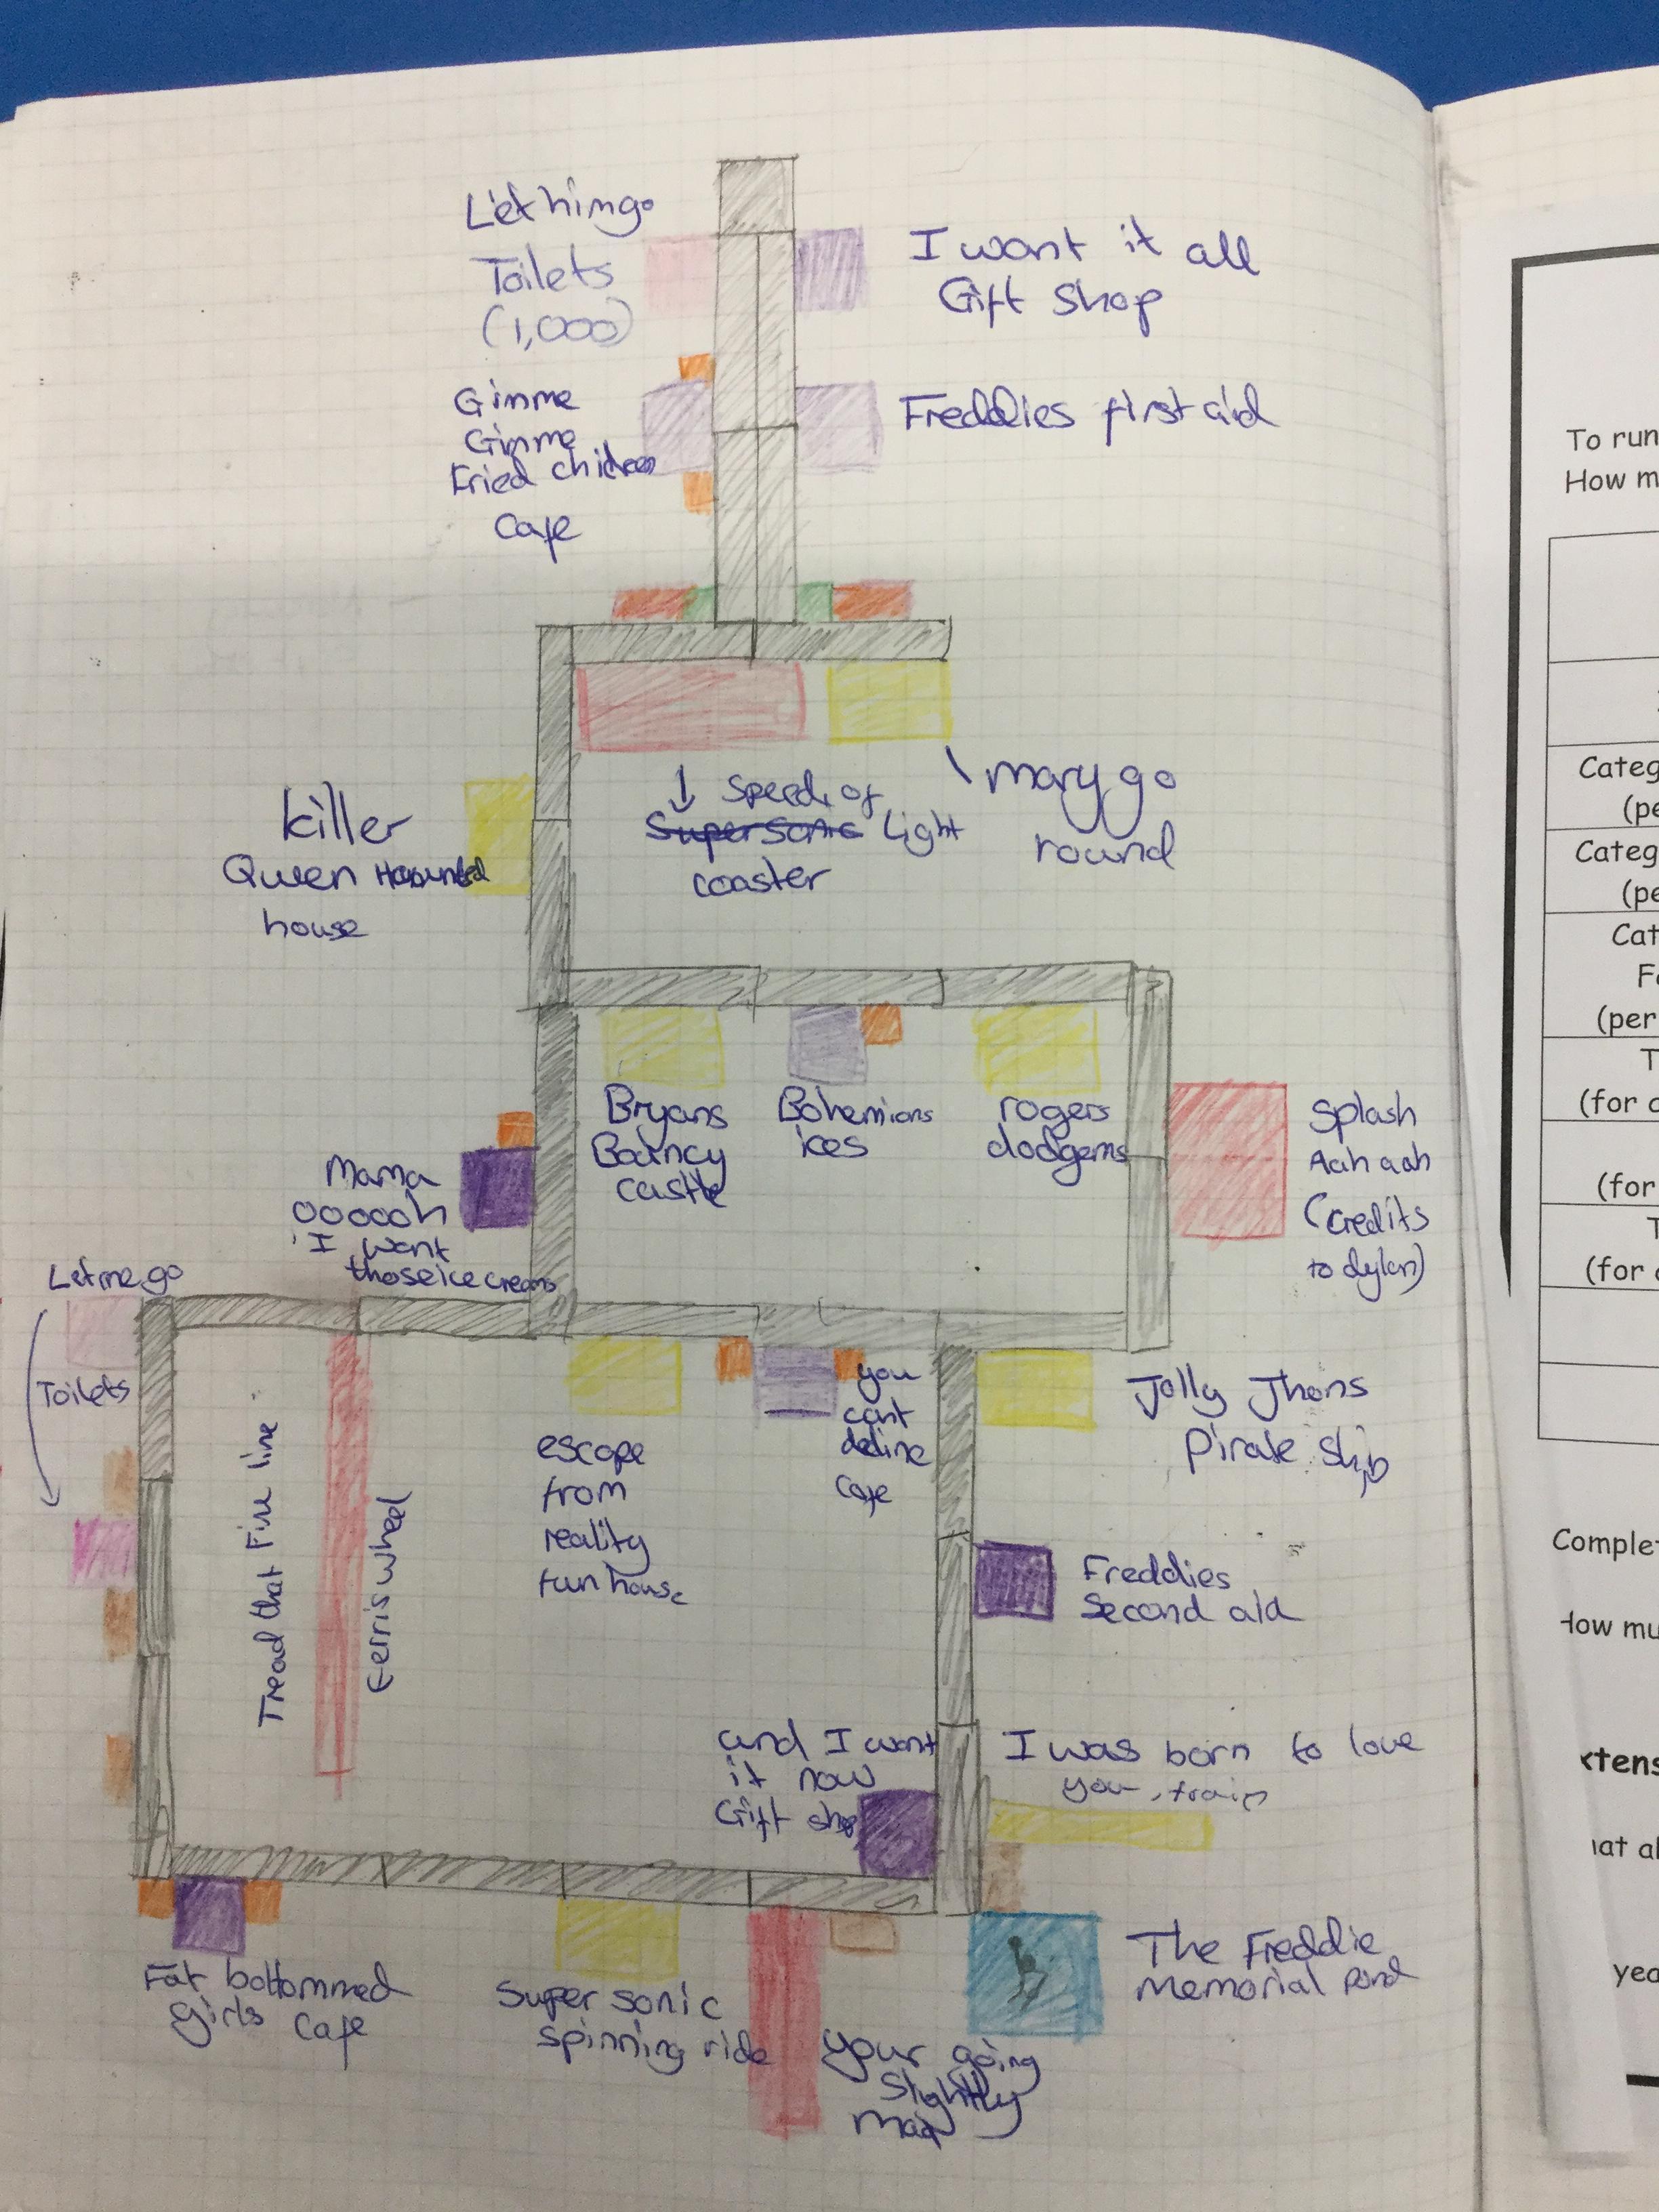 Let him go
Toilets
(1,000)
I want it all
Gift Shop
Gimme
Gimme
Fried chicken
Cafe
Freddies first aid
killer
Queen Haounted
house
Speed of
Supersonic Light
coaster
mary go
round
Bryans
Bouncy
castle
Bohemians
ices
rogers
dodgems
Splash
Aah aah
(credits
to dylan)
Mama
oooooh
I want
those ice creams
Let me go
Toilets
Tread that Fine line
Ferris wheel
escape
from
reality
fun house
you
cant
deline
cafe
Jolly Jhons
Pirate ship
Freddies
Second aid
and I want
it now
Gift shop
I was born to love
you train
Fat bottommed
girls cafe
Super sonic
spinning ride
your going
Slightly
mad
The Freddie
Memorial Pond
To run
How m
Categ
(pe
Categ
(pe
Cat
Fo
(per
T
(for c
(for
T
(for c
Complet
How mu
xtens
at al
yea